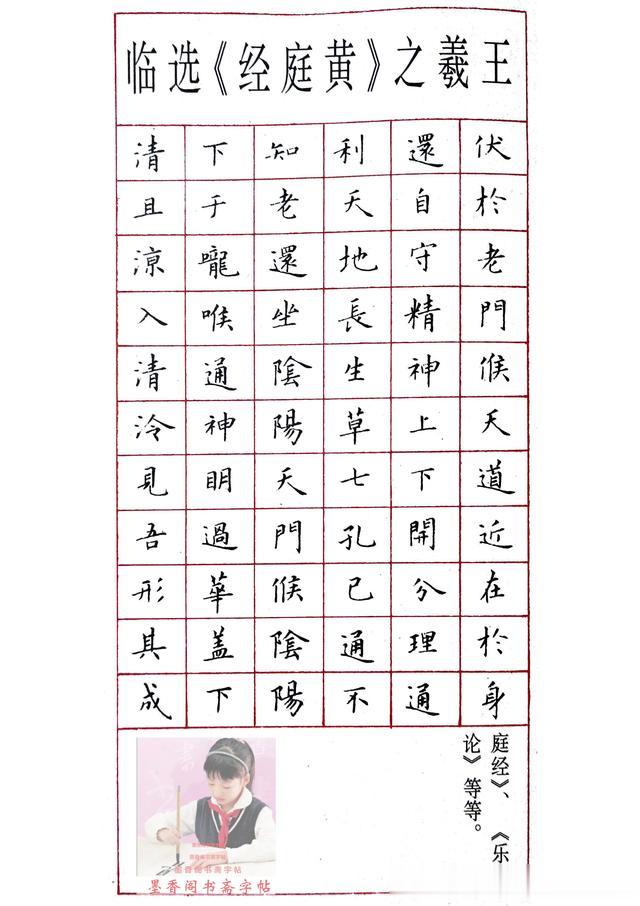 王羲之《黄庭经》选临
伏於老門候天道近在於身
還自守精神上下開分理通
利天地長生草七孔已通不
知老還坐陰陽天門候陰陽
下于嚨喉通神明過華盖下
清且涼入清泠見吾形其成
庭经》、《乐
论》等等。
墨香阁书斋字帖
墨香阁书斋字帖